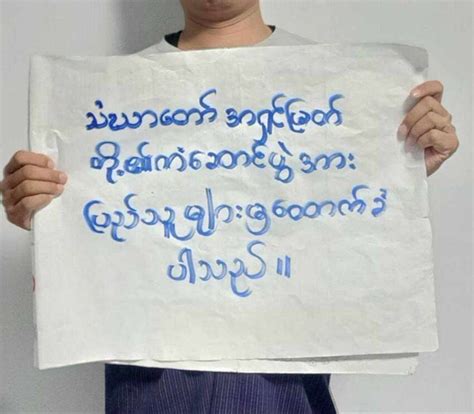 သံဃာတော် အရှင်မြတ်
တို့၏ကံဆောင်ပွဲ အား
ပြည်သူများမှထောက်ခံ
ပါသည်။